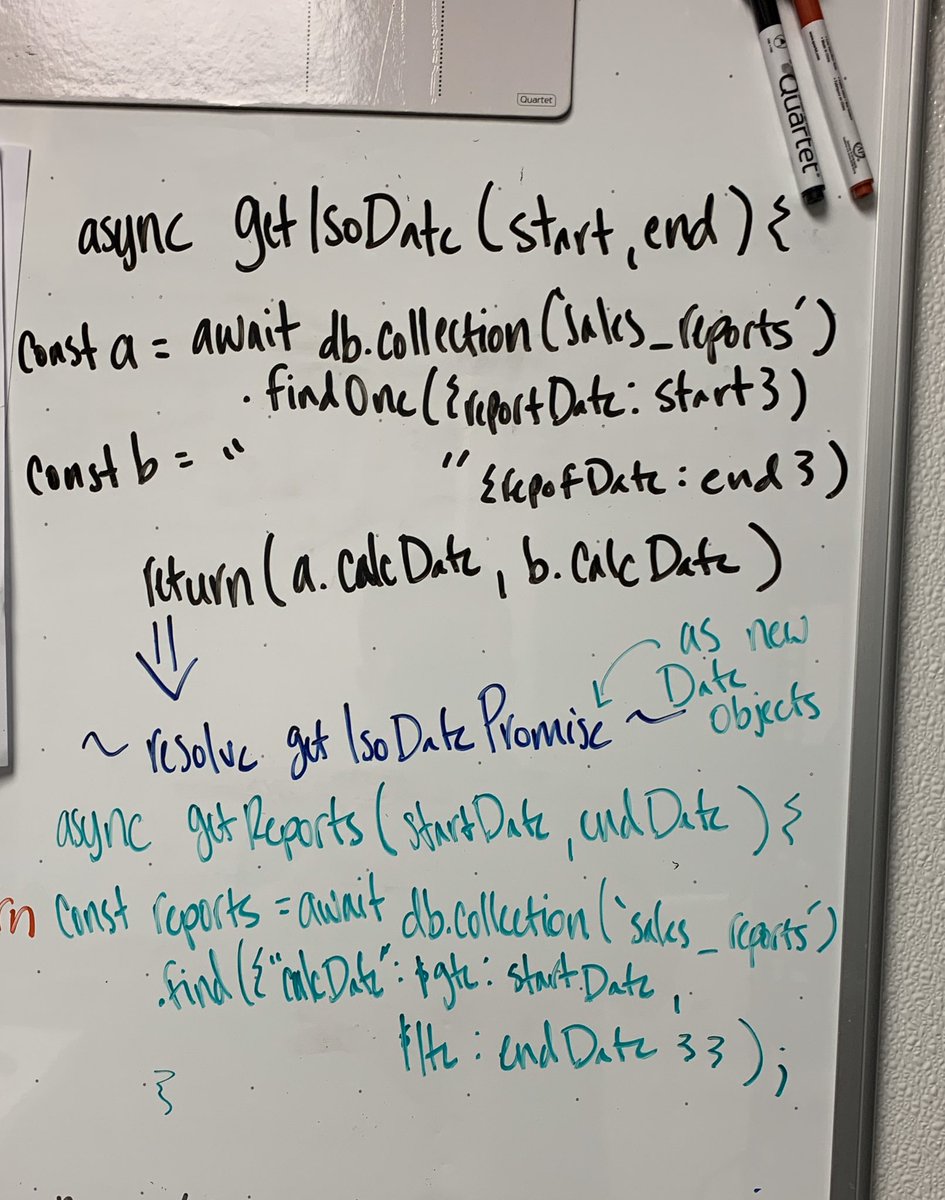 Quartet
Quartet
async getIsoDate (start, end) {
const a = await db.collection('sales_reports')
.findOne({reportDate: start})
const b = " " {repofDate: end})
return(a.calcDate, b.calcDate)
as new
Date
objects
~ resolve getIsoDatePromise ~
async getReports (startDate, endDate) {
const reports = await db.collection('sales_reports')
.find({"calcDate": $gte: startDate,
$lte: endDate }});
}